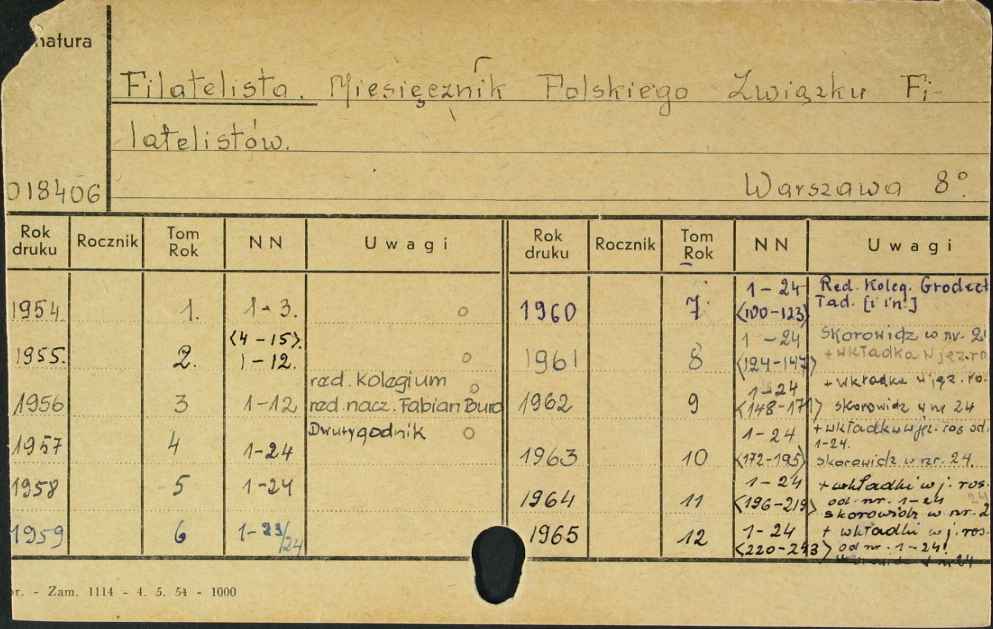 natura
Filatelista. Miesięcznik Polskiego Związku Fi-
latelistów.
018406
Warszawa 8°.
Rok druku Rocznik Tom Rok NN Uwagi Rok druku Rocznik Tom Rok NN Uwagi
1954 1. 1-3.
1955. 2. <4-15>. 1-12.
1956 3 1-12 red. Kolegium red. nacz. Fabian Bura
1957 4 1-24 Dwutygodnik
1958 5 1-24
1959 6 1-23/24
1960 7 1-24 <100-123> Red. Koleg. Grodect Tad. [i in.]
1961 8 1-24 <124-147> Skorowidz w nr. 21 + wkładka w jęz. ro
1962 9 1-24 <148-171> + wkładka w jęz. ro. skorowidz w nr 24
1963 10 1-24 <172-195> + wkładka w jęz. ros od. 1-24. skorowidz w nr. 24.
1964 11 1-24 <196-219> + wkładki w j. ros. od. nr. 1-24 skorowidz w nr. 2
1965 12 1-24 <220-243> + wkładki w j. ros. od nr. 1-24! w nr 24
or. - Zam. 1114 - 4. 5. 54 - 1000